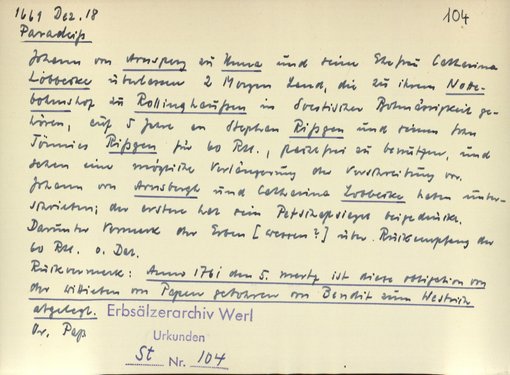 1661 Dez. 18
104
Paradeiß
Johann von Arnsperg zu Unna und seine Ehefrau Catharina
Löbbecke überlassen 2 Morgen Land, die zu ihrem Notte-
bohmshof zu Rollinghaußen in Soestischer Bohmässigkeit ge-
hören, auf 5 Jahre an Stephan Rißgen und seinen Sohn
Tönnies Rißgen für 60 Rtl., pachtfrei zu benutzen, und
sehen eine mögliche Verlängerung der Verschreibung vor.
Johann von Arnsbergh und Catharina Lobbecke haben unter-
schrieben; der erstere hat sein Petschaftsiegel beigedrückt.
Darunter Vermerk der Erben [wessen?] über Rückempfang der
60 Rtl. o. Dat.
Rückvermerk: Anno 1761 den 5. mertz ist diese obligation von
der wittiben von Papen gebohren von Bendit zum Westrich
abgelegt.
Erbsälzerarchiv Werl
Dr. Paß
Urkunden
St Nr. 104